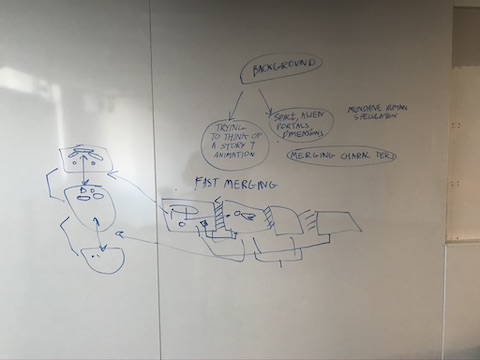 BACKGROUND
TRYING
TO THINK OF
A STORY &
ANIMATION
SPACE, ALIEN
PORTALS
DIMENSIONS
MUNDANE HUMAN
SPECULATION
MERGING CHARACTERS
FAST MERGING